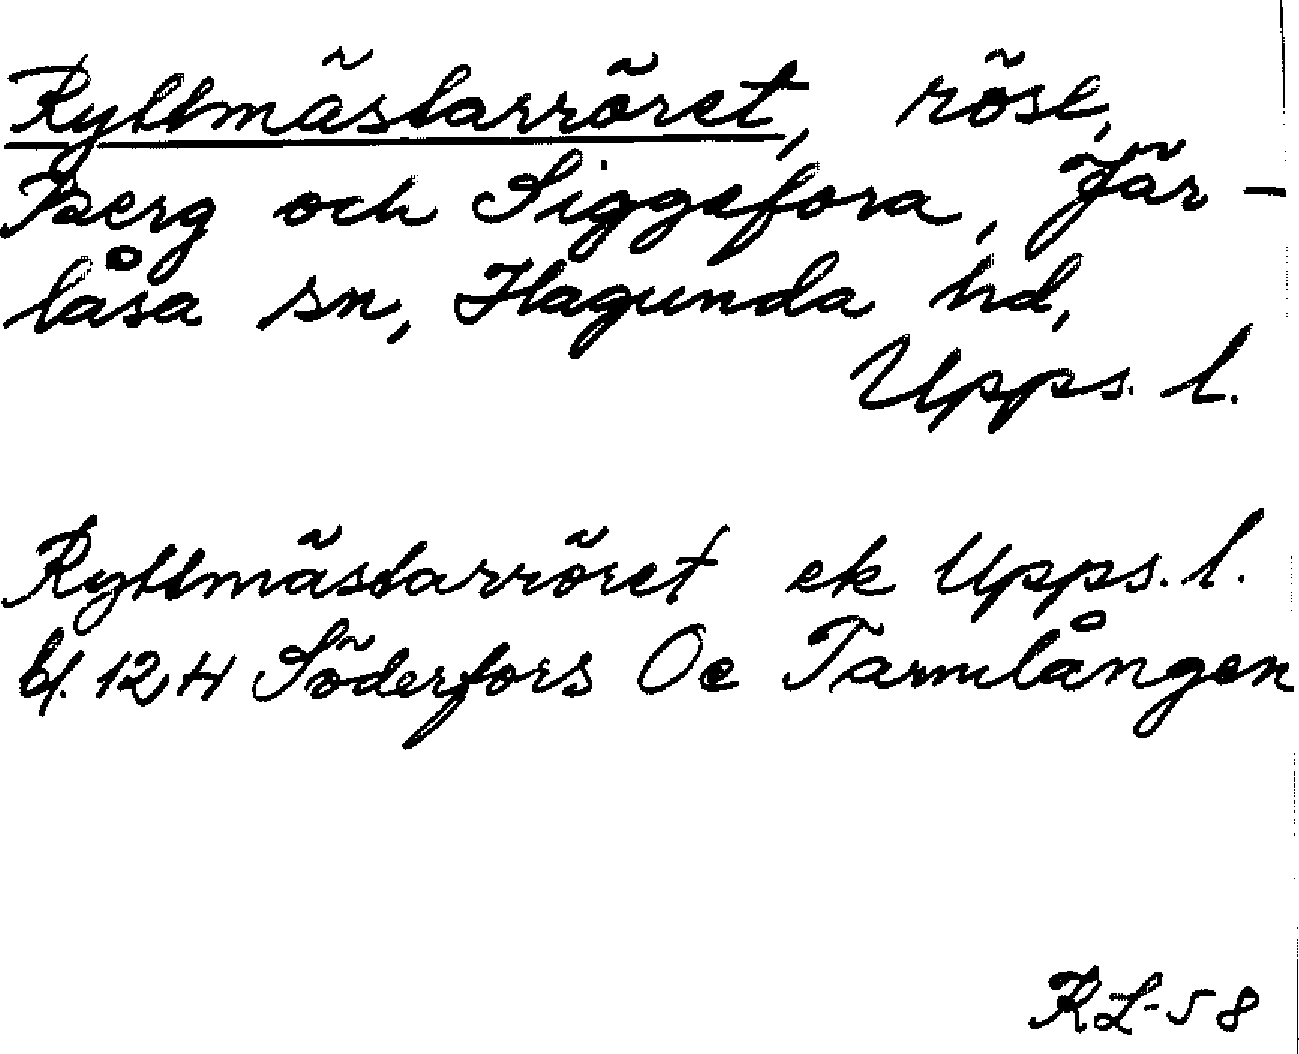 Ryttmästarröret, röse,
Berg och Siggefora, Jär-
låsa sn, Hagunda hd,
Upps. l.
Ryttmästarröret ek Upps. l.
bl. 124 Söderfors Oe Tarmlången
RL-58